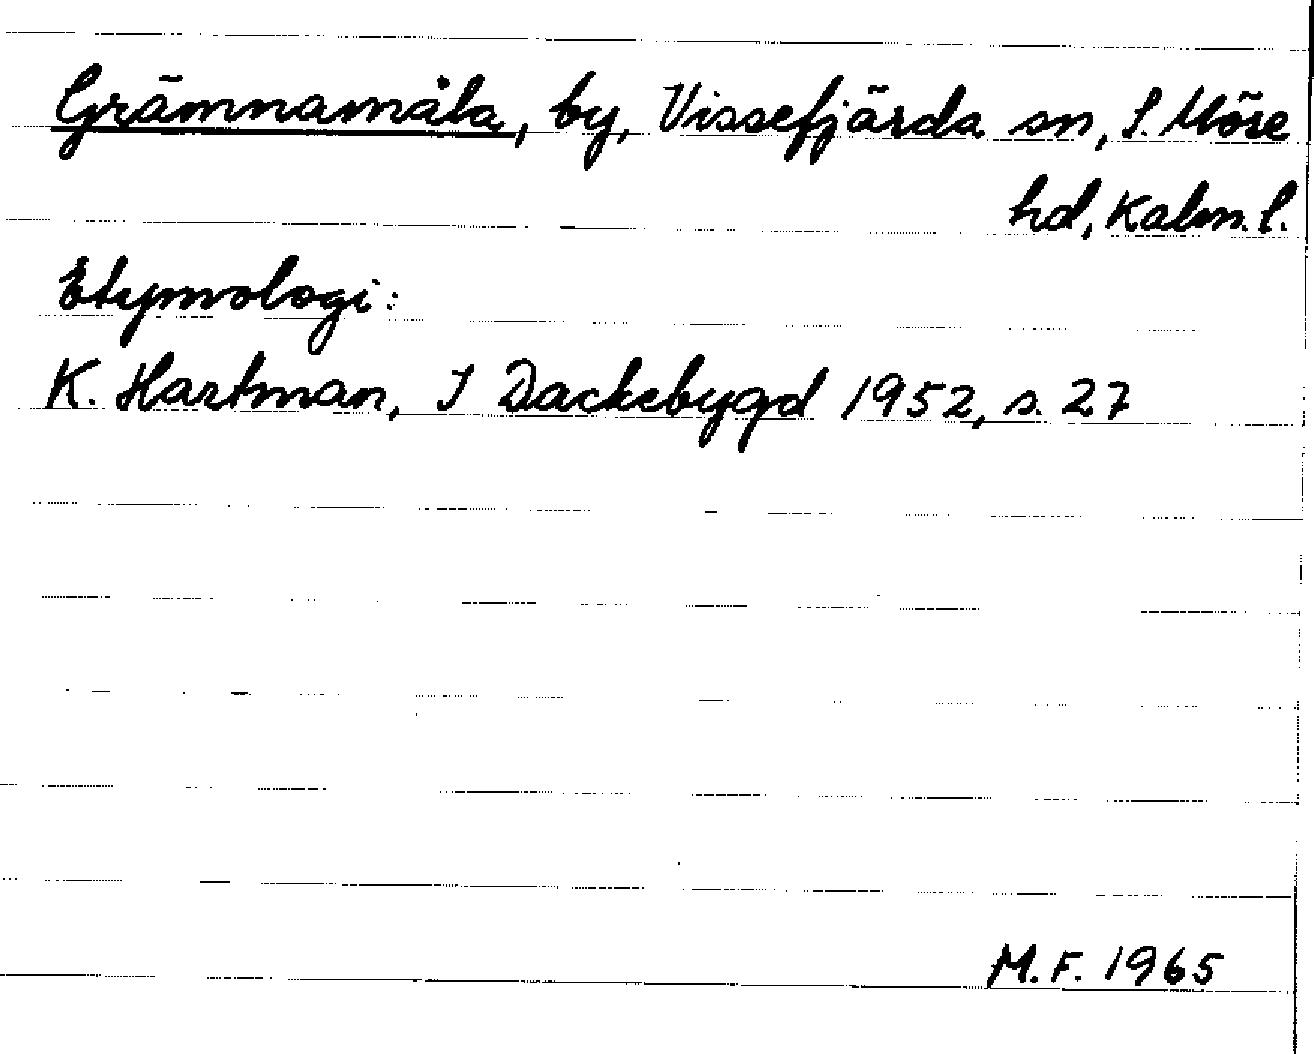 Grämnamåla, by, Vissefjärda sn, S. Möre
hd, Kalm. l.
Etymologi:
K. Hartman, I Dackebygd 1952, s. 27
M.F. 1965